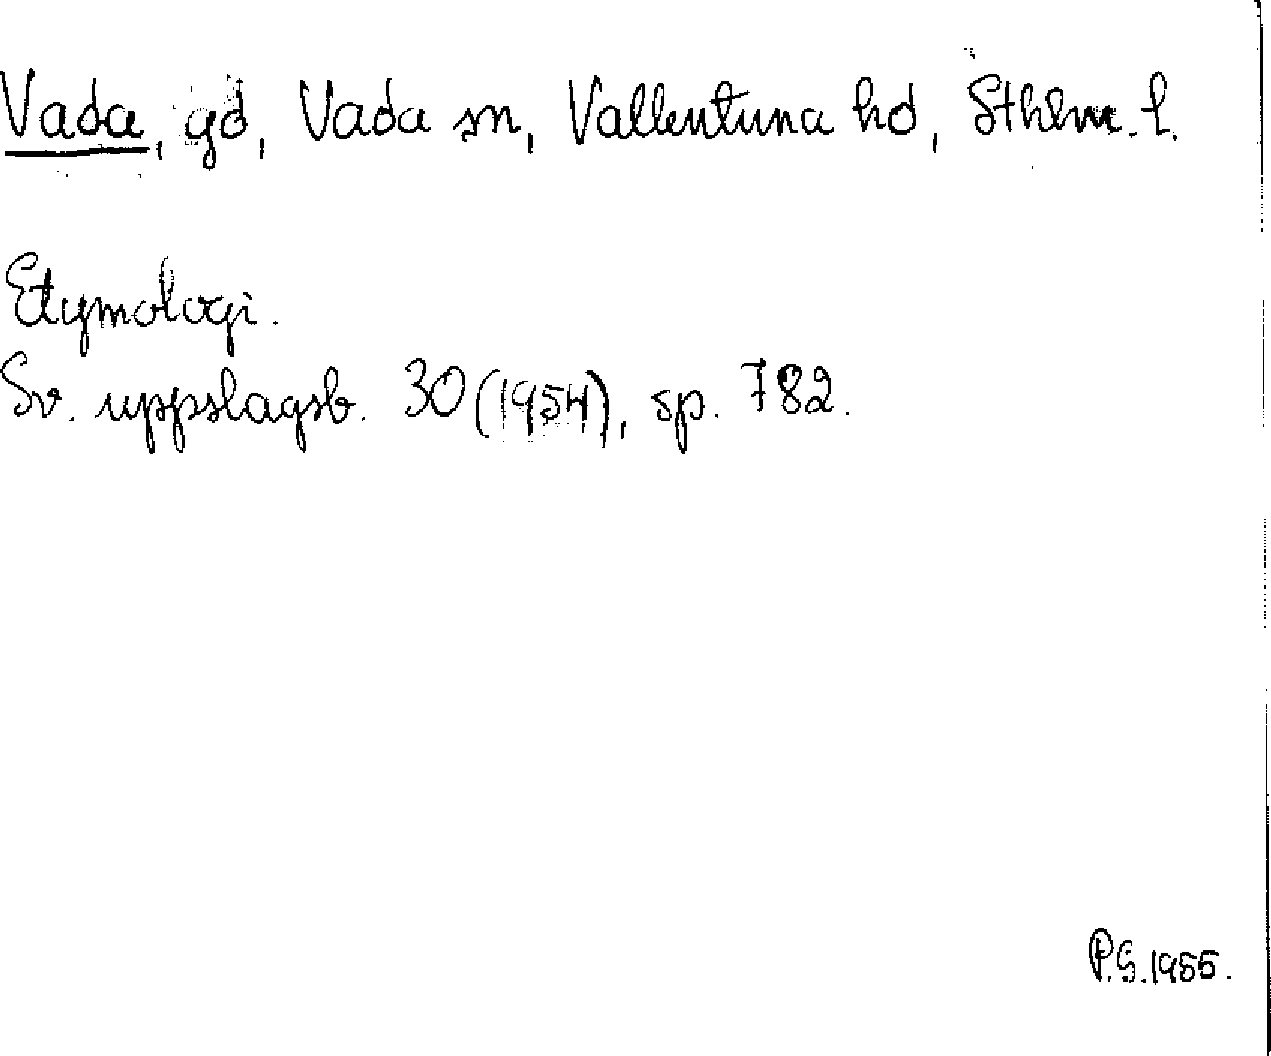 Vada, gd, Vada sn, Vallentuna hd, Sthlm. l.
Etymologi.
Sv. uppslagsb. 30 (1954), sp. 782.
P.G. 1955.